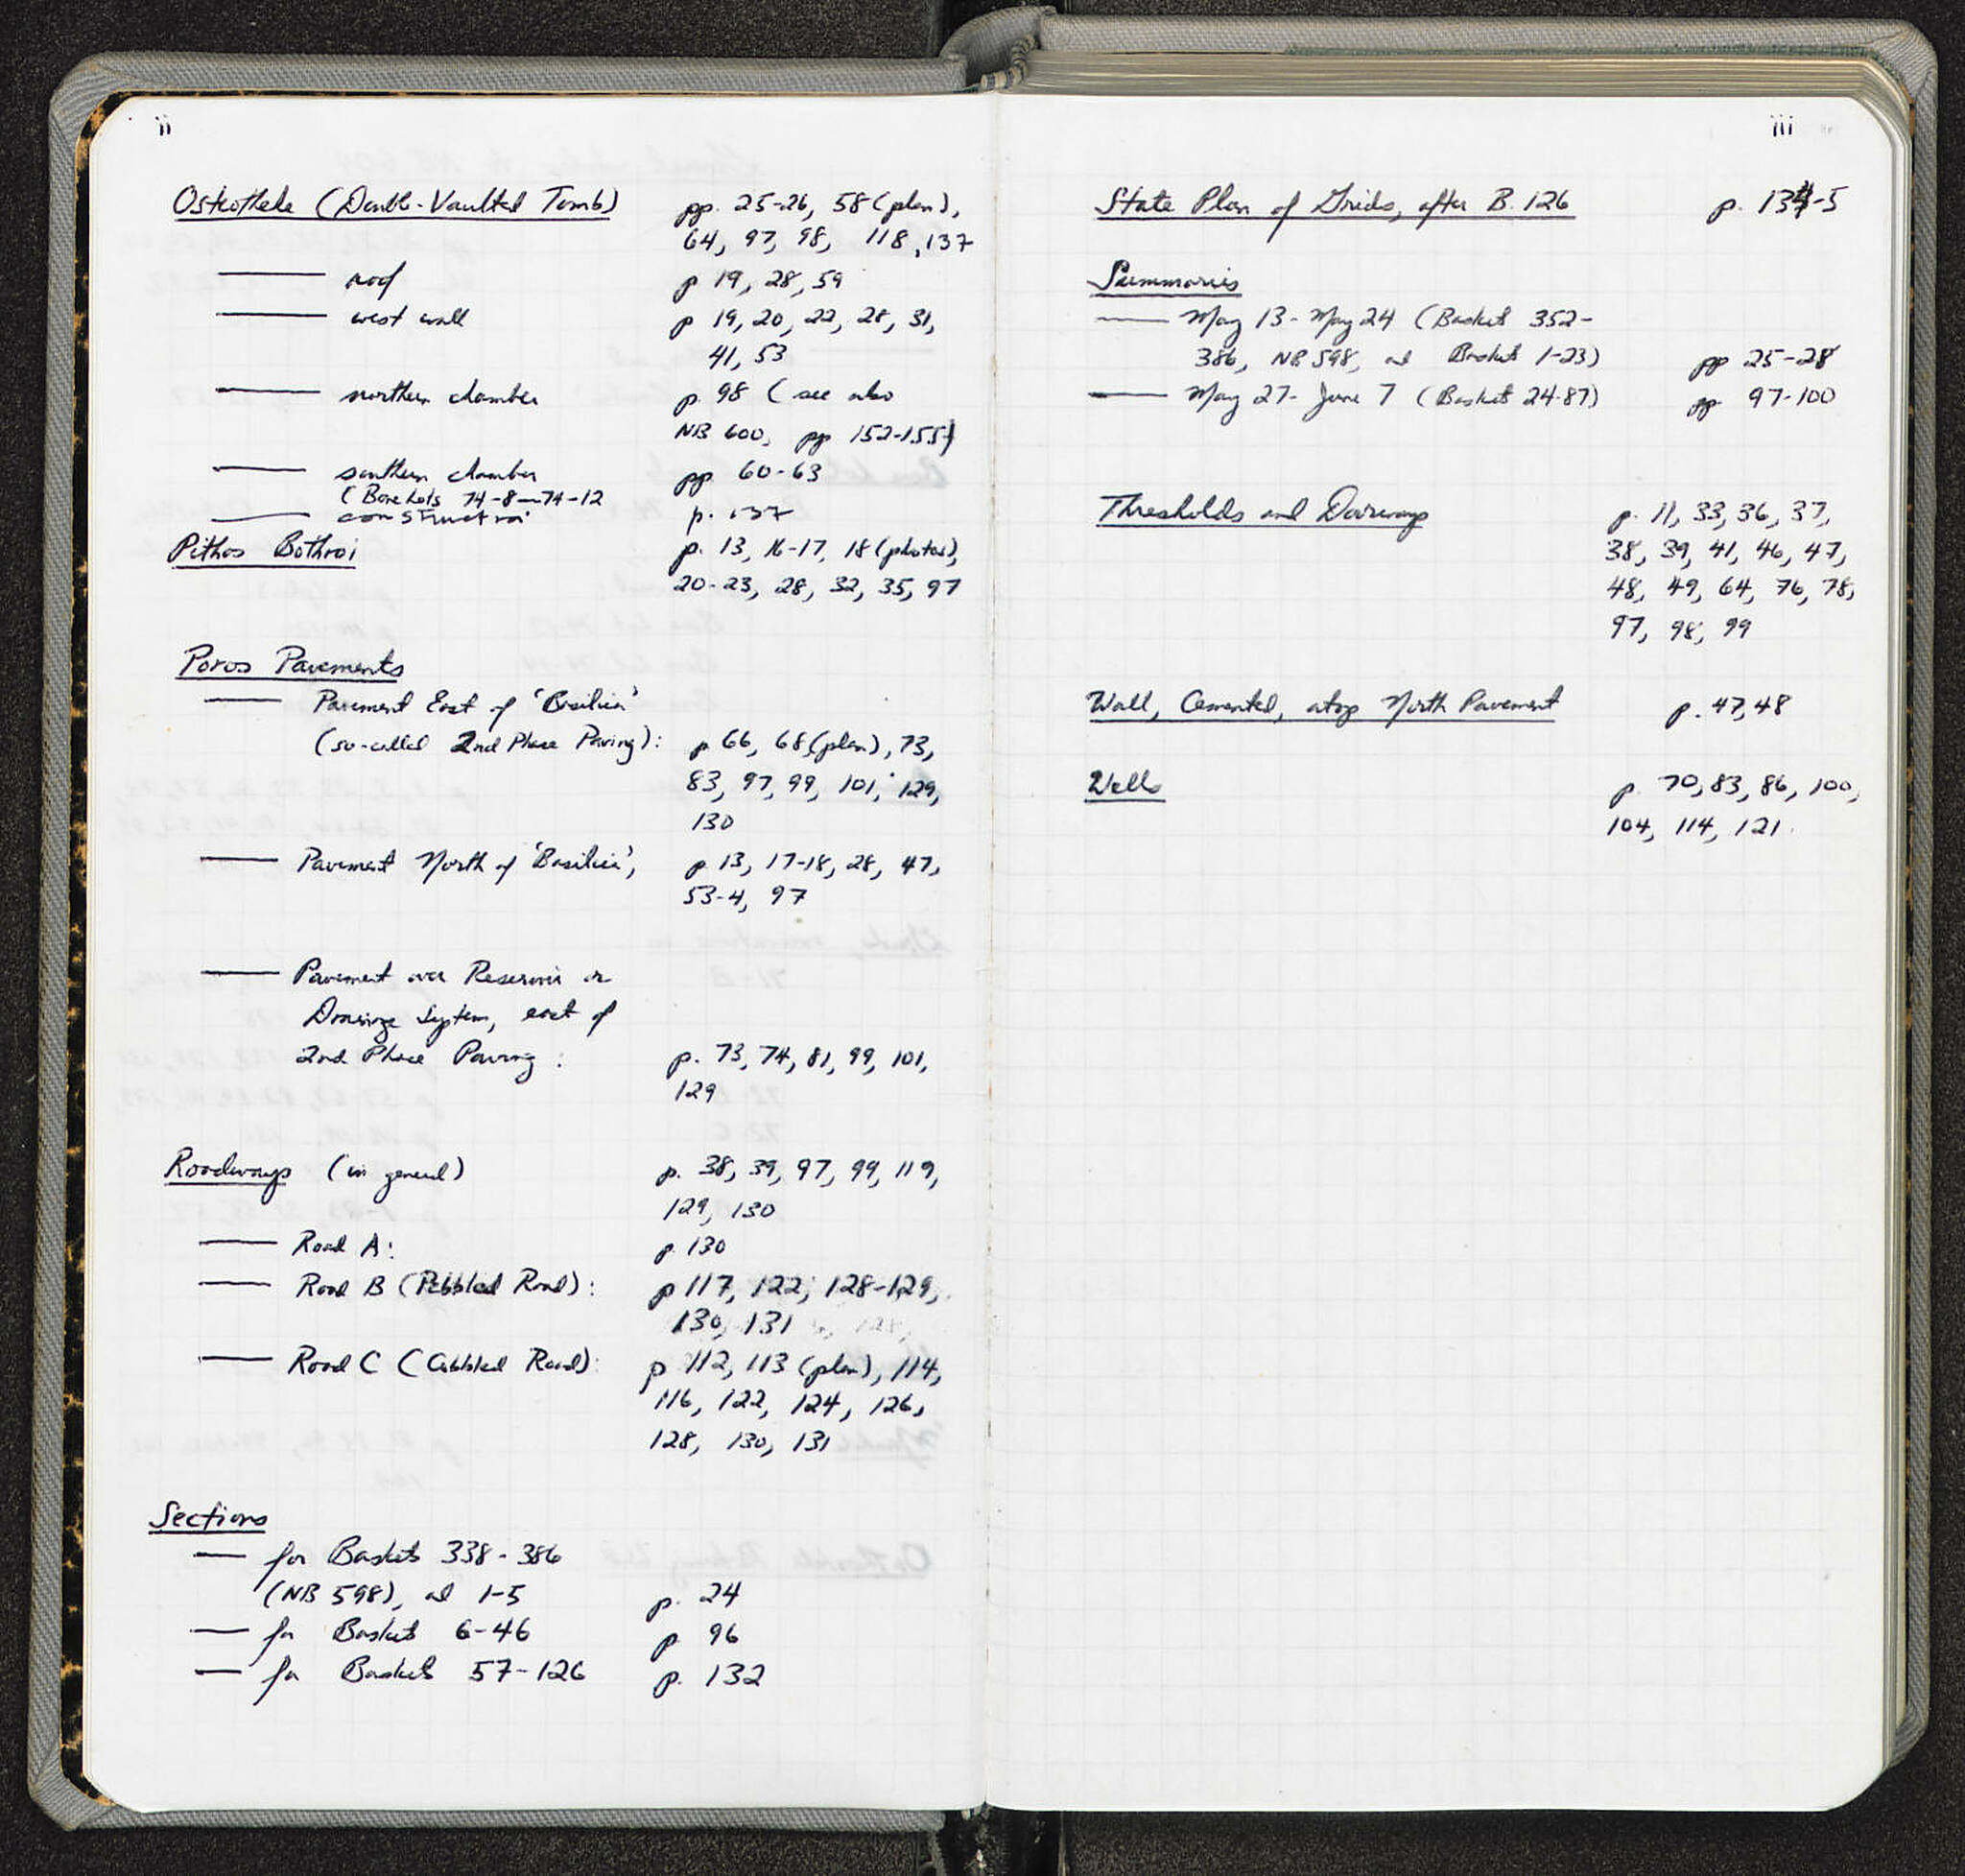 ii
Osteotheke (Double-Vaulted Tomb) pp. 25-26, 58 (plan),
64, 97, 98, 118, 137
—— roof p 19, 28, 59
—— west wall p 19, 20, 22, 28, 31,
41, 53
—— northern chamber p. 98 (see also
NB 600, pp 152-155)
—— southern chamber pp. 60-63
(Bone Lots 74-8—74-12
—— construction p. 137
Pithos Bothroi p. 13, 16-17, 18 (photos),
20-23, 28, 32, 35, 97
Poros Pavements
—— Pavement East of 'Basilica'
(so-called 2nd Phase Paving): p 66, 68 (plan), 73,
83, 97, 99, 101, 129,
130
—— Pavement North of 'Basilica', p. 13, 17-18, 28, 47,
53-4, 97
—— Pavement over Reservoir or
Drainage System, east of
2nd Phase Paving: p. 73, 74, 81, 99, 101,
129
Roadways (in general) p. 38, 39, 97, 99, 119,
129, 130
—— Road A: p. 130
—— Road B (Pebbled Road): p 117, 122, 128-129,
130, 131
—— Road C (Cobbled Road): p 112, 113 (plan), 114,
116, 122, 124, 126,
128, 130, 131
Sections
— for Baskets 338-386
(NB 598), and 1-5 p. 24
— for Baskets 6-46 p. 96
— for Baskets 57-126 p. 132
iii
State Plan of Grids, after B. 126 p. 134-5
Summaries
—— May 13 - May 24 (Basket 352-
386, NB 598, and Baskets 1-23) pp 25-28
—— May 27 - June 7 (Baskets 24-87) pp. 97-100
Thresholds and Doorways p. 11, 33, 36, 37,
38, 39, 41, 46, 47,
48, 49, 64, 76, 78,
97, 98, 99
Wall, Cemented, atop North Pavement p. 47, 48
Wells p. 70, 83, 86, 100,
104, 114, 121.